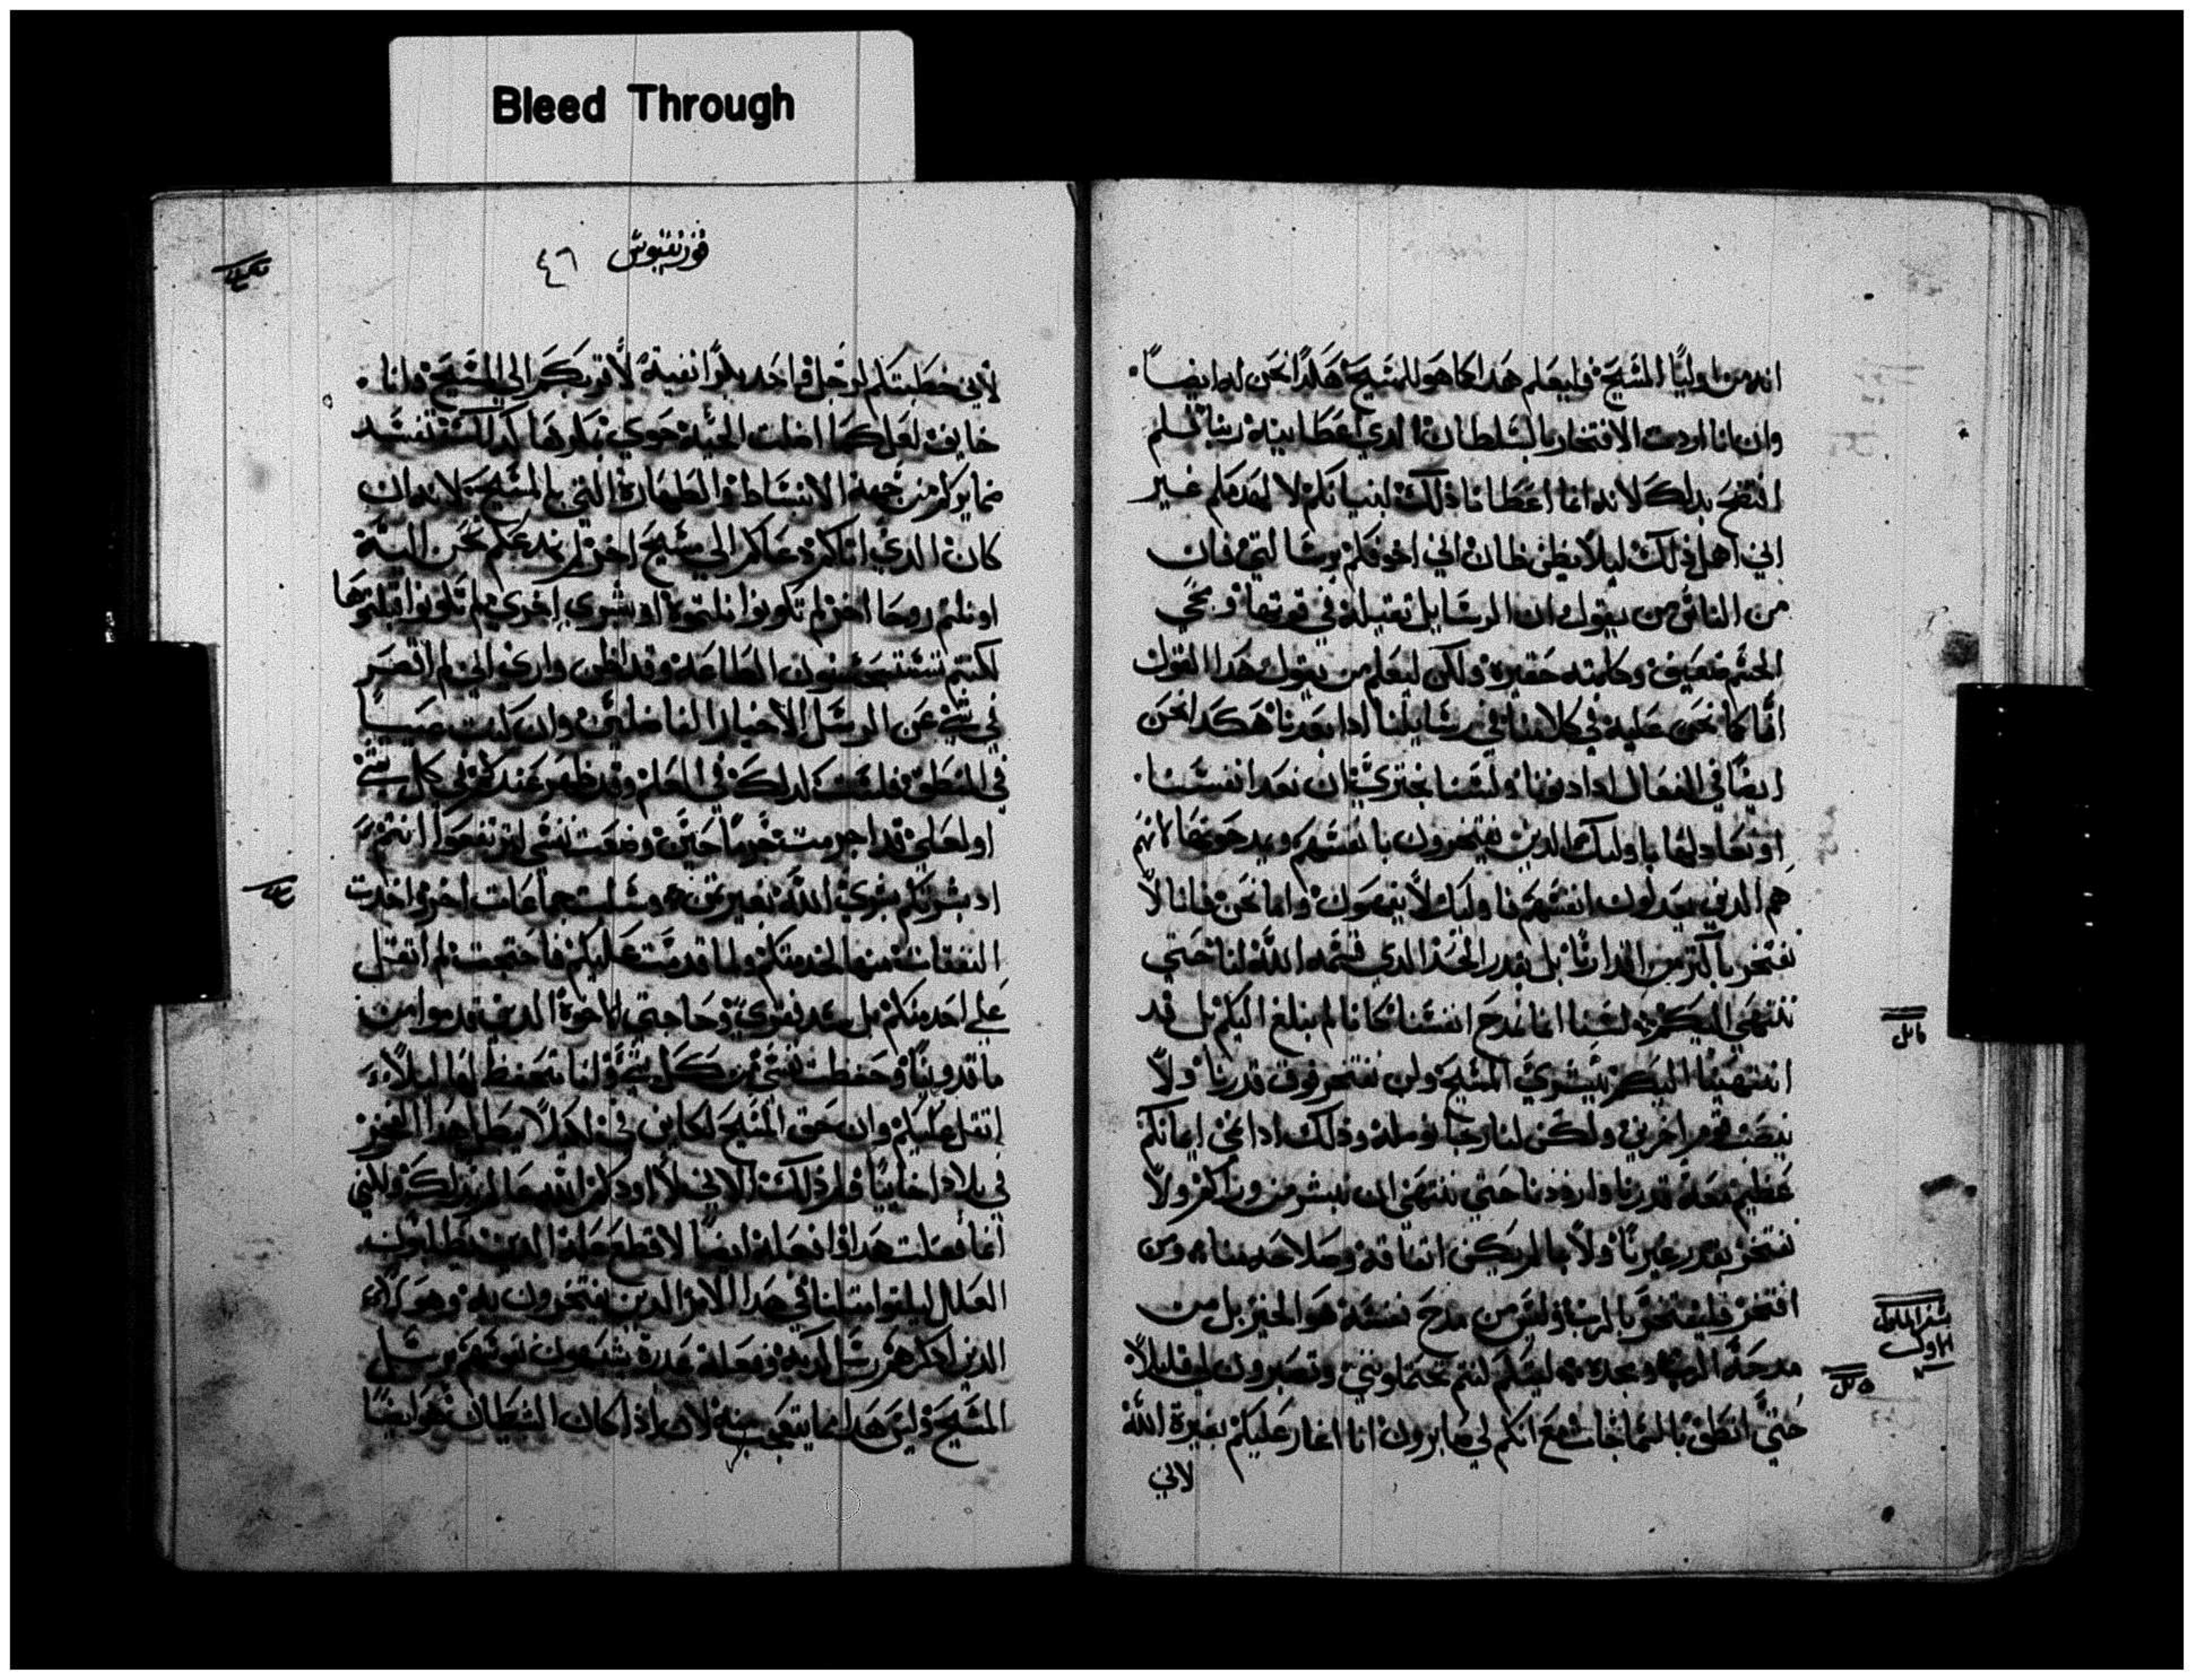 Bleed Through
انه من اوليا المسيح فليعلم هدا كما هو للمسيح هكدا نحن له ايضاً
وان انا اردت الافتخار بالسلطان الدي اعطانيه ربنا لم
افتضح بدلك لانه انما اعطانا ذلك لبنيانكم لا لهدمكم غير
اني اهمل ذلك ليلا يظن ظان اني اخوفكم برسالتي فان
من الناس من يقول ان الرسايل تقيله في قوتها ومجي
الجسم ضعيف وكلمته حقيره ولكن ليعلم من يقول هدا القول
انا كما نحن عليه في كلامنا في رسايلنا ادا بعدنا هكدا نحن
ايضاً في الفعال ادا دنونا ولسنا نجتري ان نعد انفسنا
او نعادلها باوليك الدين يفتخرون بانفسهم ويمدحونها لانهم
هم الدين يعدلون انفسهم فاوليك لا يفهمون واما نحن فانا لا
نفتخر باكتر من اقدارنا بل بقدر الحد الدي قسمه الله لنا حتي
ننتهي اليكم لسنا انما نمدح انفسنا كانا لم نبلغ اليكم بل قد
انتهينا اليكم ببشري المسيح ولن نفتخر فوق قدرنا ولا
بنصب قوم اخرين ولكن لنا رجا نومله وذلك ادا نمي ايمانكم
عظيم نعله قدرنا وازددنا حتي ننتهي ان نبشر من وراكم ولا
نفتخر بقدر غيرنا ولا بما لم يكن اتفاقه وصلاحه منا ومن
افتخر فليفتخر بالرب وليس من مدح نفسه هو الخير بل من
مدحه الرب ومجده ليتكم كنتم تحتملونني وتصبرون لي قليلاً
حتي انطق بالسماجات مع انكم لي صابرون انا اغار عليكم بغيرة الله
لاني
سفر الملوك
الاول
قورنتيوس ٤٦
لأني خطبتكم لرجل واحد بكراً نقية لاقربكم الي المسيح وانا
خايف لعل كما اضلت الحيه حوي بمكرها كدلك تفسد
ضمايركم من جهة الانبساط والطهارة التي بالمسيح لانه ان
كان الدي اتاكم دعاكم الي مسيح اخر لم ندعكم نحن اليه
او نلتم روحا اخر لم تكونوا نلتموه او بشري اخري لم تكونوا قبلتوها
لكنتم تستحسنون الطاعه وقد اظن واري اني لم اقصر
في شي عن الرسل الاخيار الفاضلين وان كنت عييا
في المنطق فلست كدلك في العلم وقد ظهر عندكم في كل شي
او لعلي قد اجرمت جرماً حين وضعت نفسي لترتفعوا انتم
اد بشرتكم بشري الله بغير تمن وسلبت جماعات اخر واخدت
النفقات منها لخدمتكم ولما قدمت عليكم فاحتجت لم اتقل
علي احد منكم بل سد فقري وحاجتي الاخوة الدين قدموا من
ماقدونيا وحفظت نفسي من كل شي وانا متحفظ لها ليلا
اتقل عليكم وان حق المسيح لكاين في انه لا يبطل هدا الفخر
في بلاد اخاييا ولم ذلك الاني لا اودكم الله عالم بدلك ولكني
انما فعلت هدا وافعله ايضاً لاقطع علة الدين يطلبون
العلل ليلفوا متلنا في هدا الامر الدين يفتخرون به وهولاء
الدين اذكرهم رسل كدبة وفعلة غدرة يشبهون نفوسهم برسل
المسيح وليس هدا مما يتعجب منه لان اذا كان الشيطان هو ايضاً